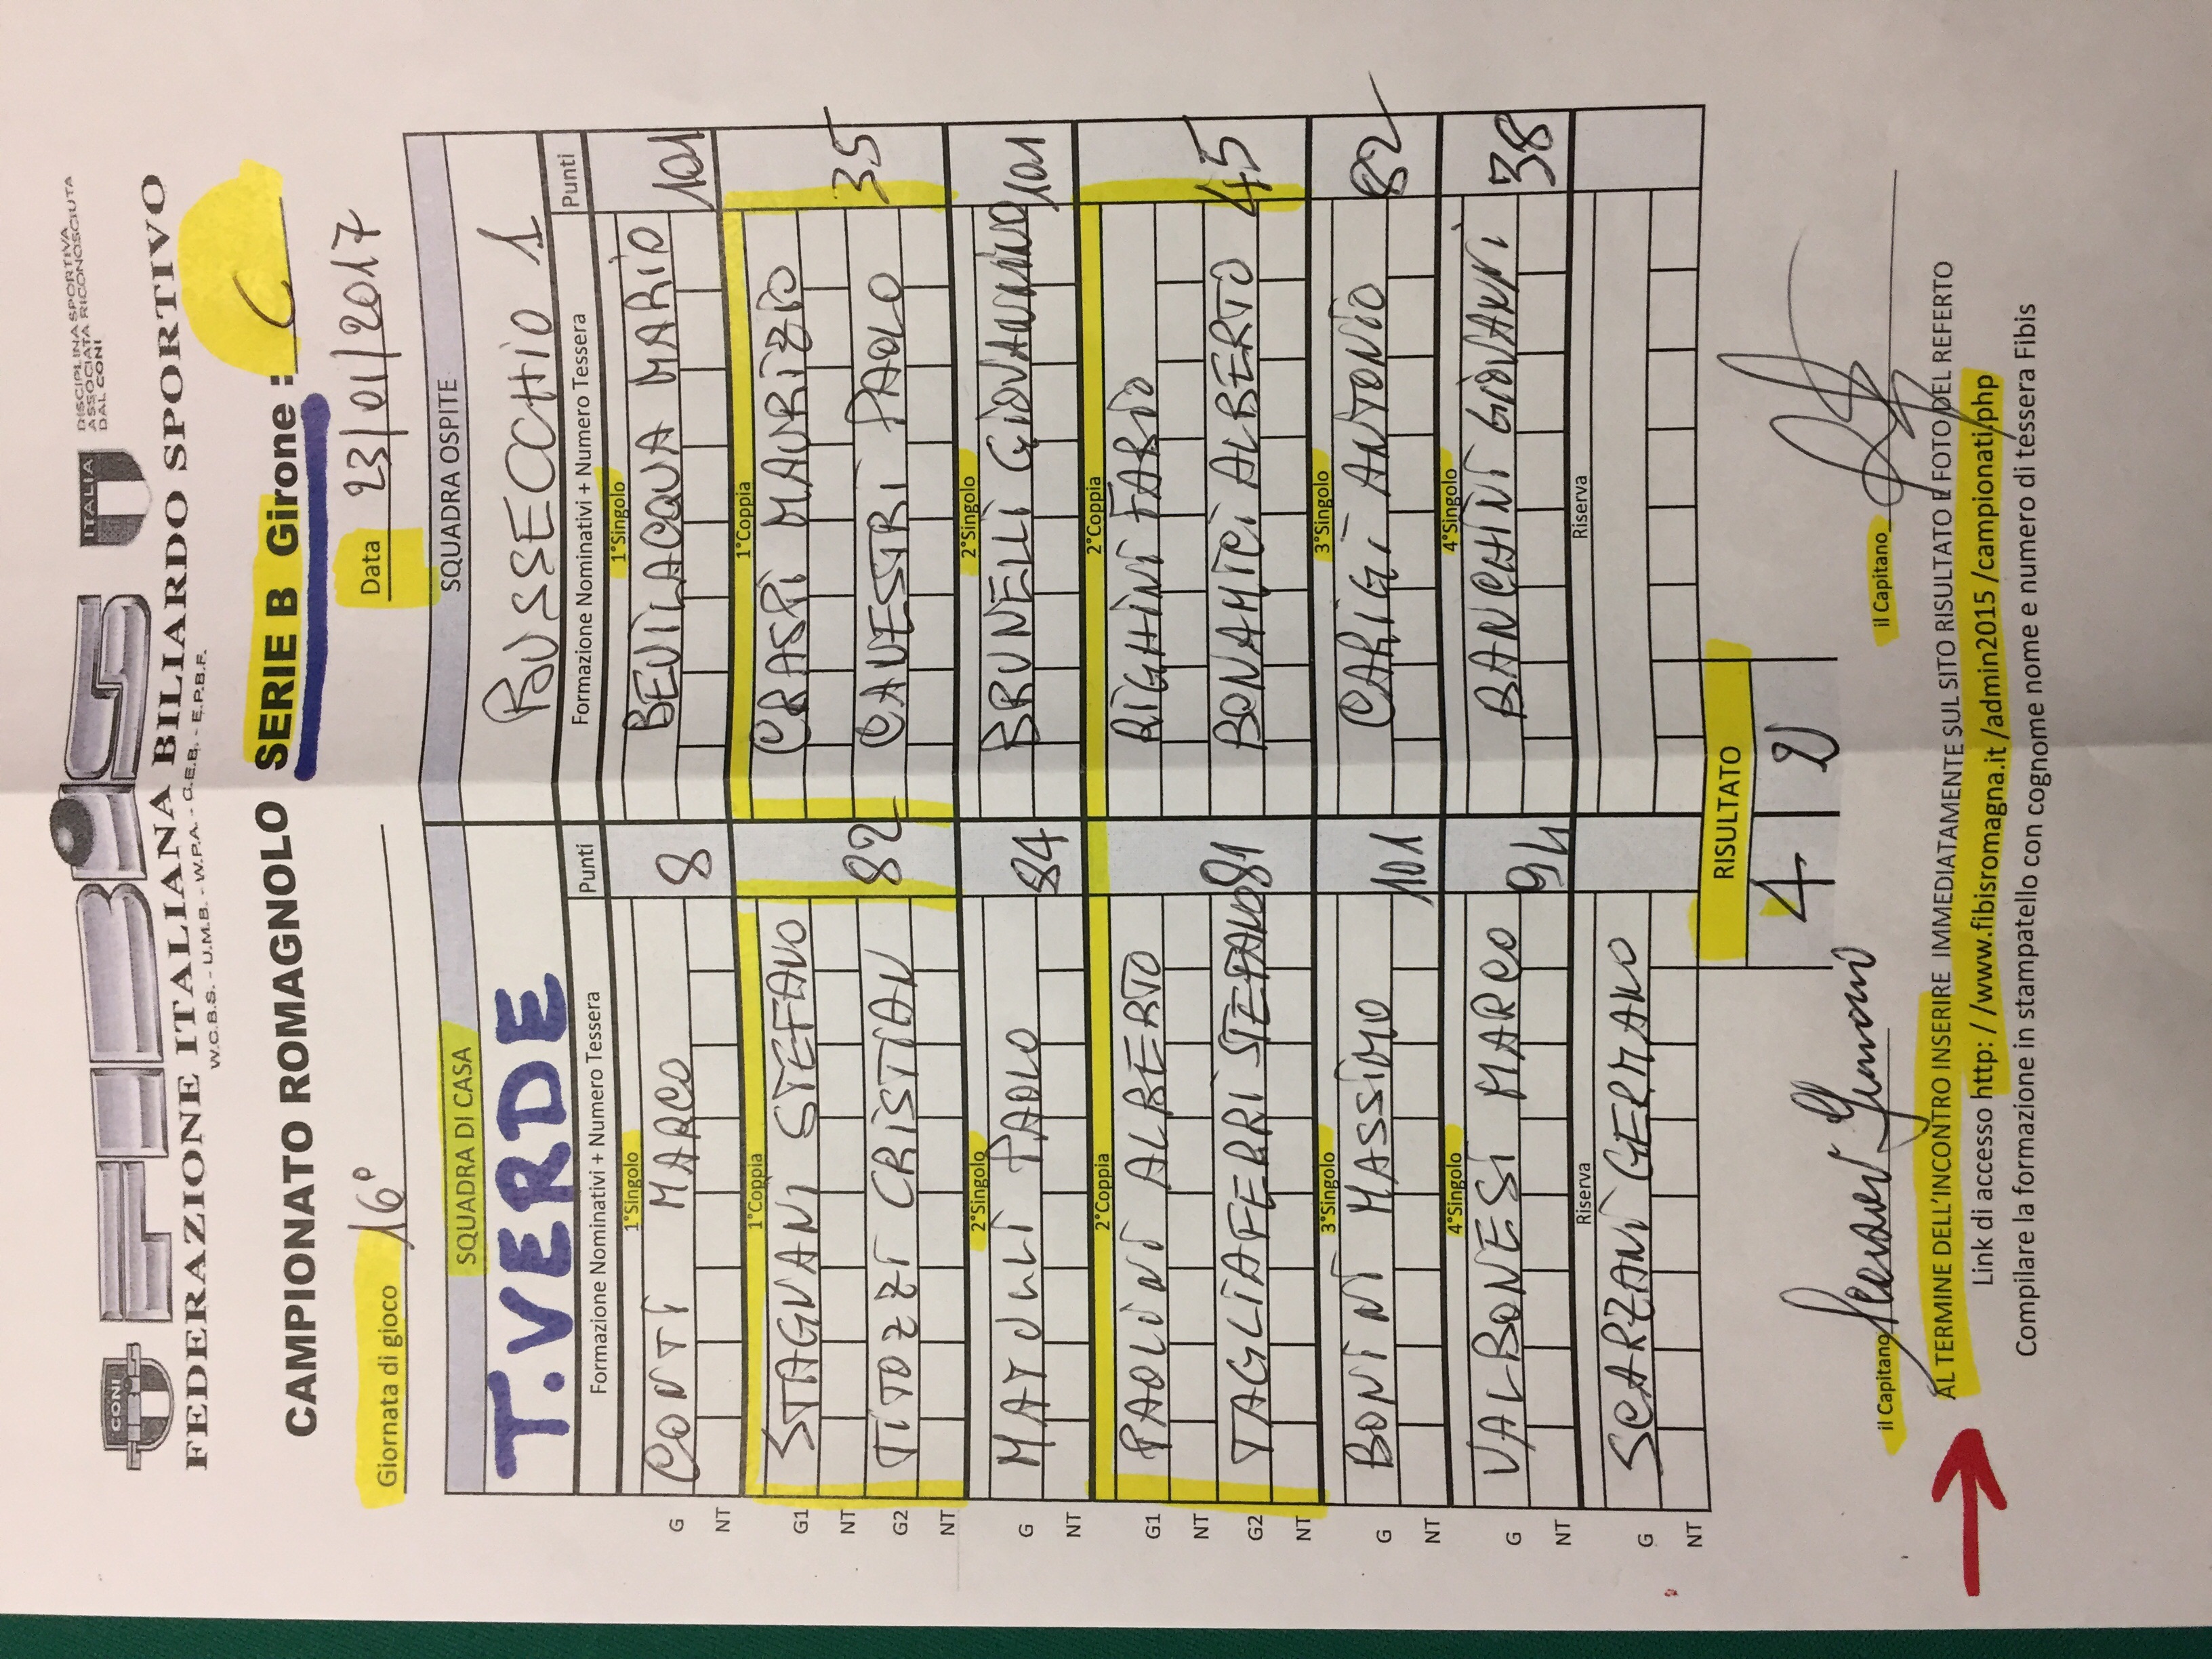 CONI
FIBiS
ITALIA
DISCIPLINA SPORTIVA
ASSOCIATA RICONOSCIUTA
DAL CONI
FEDERAZIONE ITALIANA BILIARDO SPORTIVO
W.C.B.S. - U.M.B. - W.P.A. - C.E.B. - E.P.B.F.
CAMPIONATO ROMAGNOLO SERIE B Girone : C
Giornata di gioco 16° Data 23/01/2017
SQUADRA DI CASA SQUADRA OSPITE
T.VERDE ROSSECCHIO 1
Formazione Nominativi + Numero Tessera Punti Formazione Nominativi + Numero Tessera Punti
1°Singolo 1°Singolo
G CONTI MARCO 8 BEVILACQUA MARIO 101
NT
1°Coppia 1°Coppia
G1 STAGNANI STEFANO CRASPI MAURIZIO
NT 82 35
G2 TITOZZI CRISTIAN CAVESTRI PAOLO
NT
2°Singolo 2°Singolo
G MATULLI PAOLO 84 BRUNELLI GIOVANNINO 101
NT
2°Coppia 2°Coppia
G1 PAOLINI ALBERTO RIGHINI FABIO
NT
G2 TAGLIAFERRI STEFANO 81 BONAMICI ALBERTO 45
NT
3°Singolo 3°Singolo
G BONINI MASSIMO 101 CARIGI ANTONIO 82
NT
4°Singolo 4°Singolo
G VALBONESI MARCO 94 BANCHINI GIOVANNI 38
NT
Riserva Riserva
G SCARZANI GERMANO
NT
RISULTATO
4 2
il Capitano il Capitano
AL TERMINE DELL'INCONTRO INSERIRE IMMEDIATAMENTE SUL SITO RISULTATO E FOTO DEL REFERTO
Link di accesso http: / /www.fibisromagna.it /admin2015 /campionati.php
Compilare la formazione in stampatello con cognome nome e numero di tessera Fibis